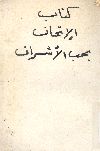 كتاب
الإتحاف
بحب الأشراف